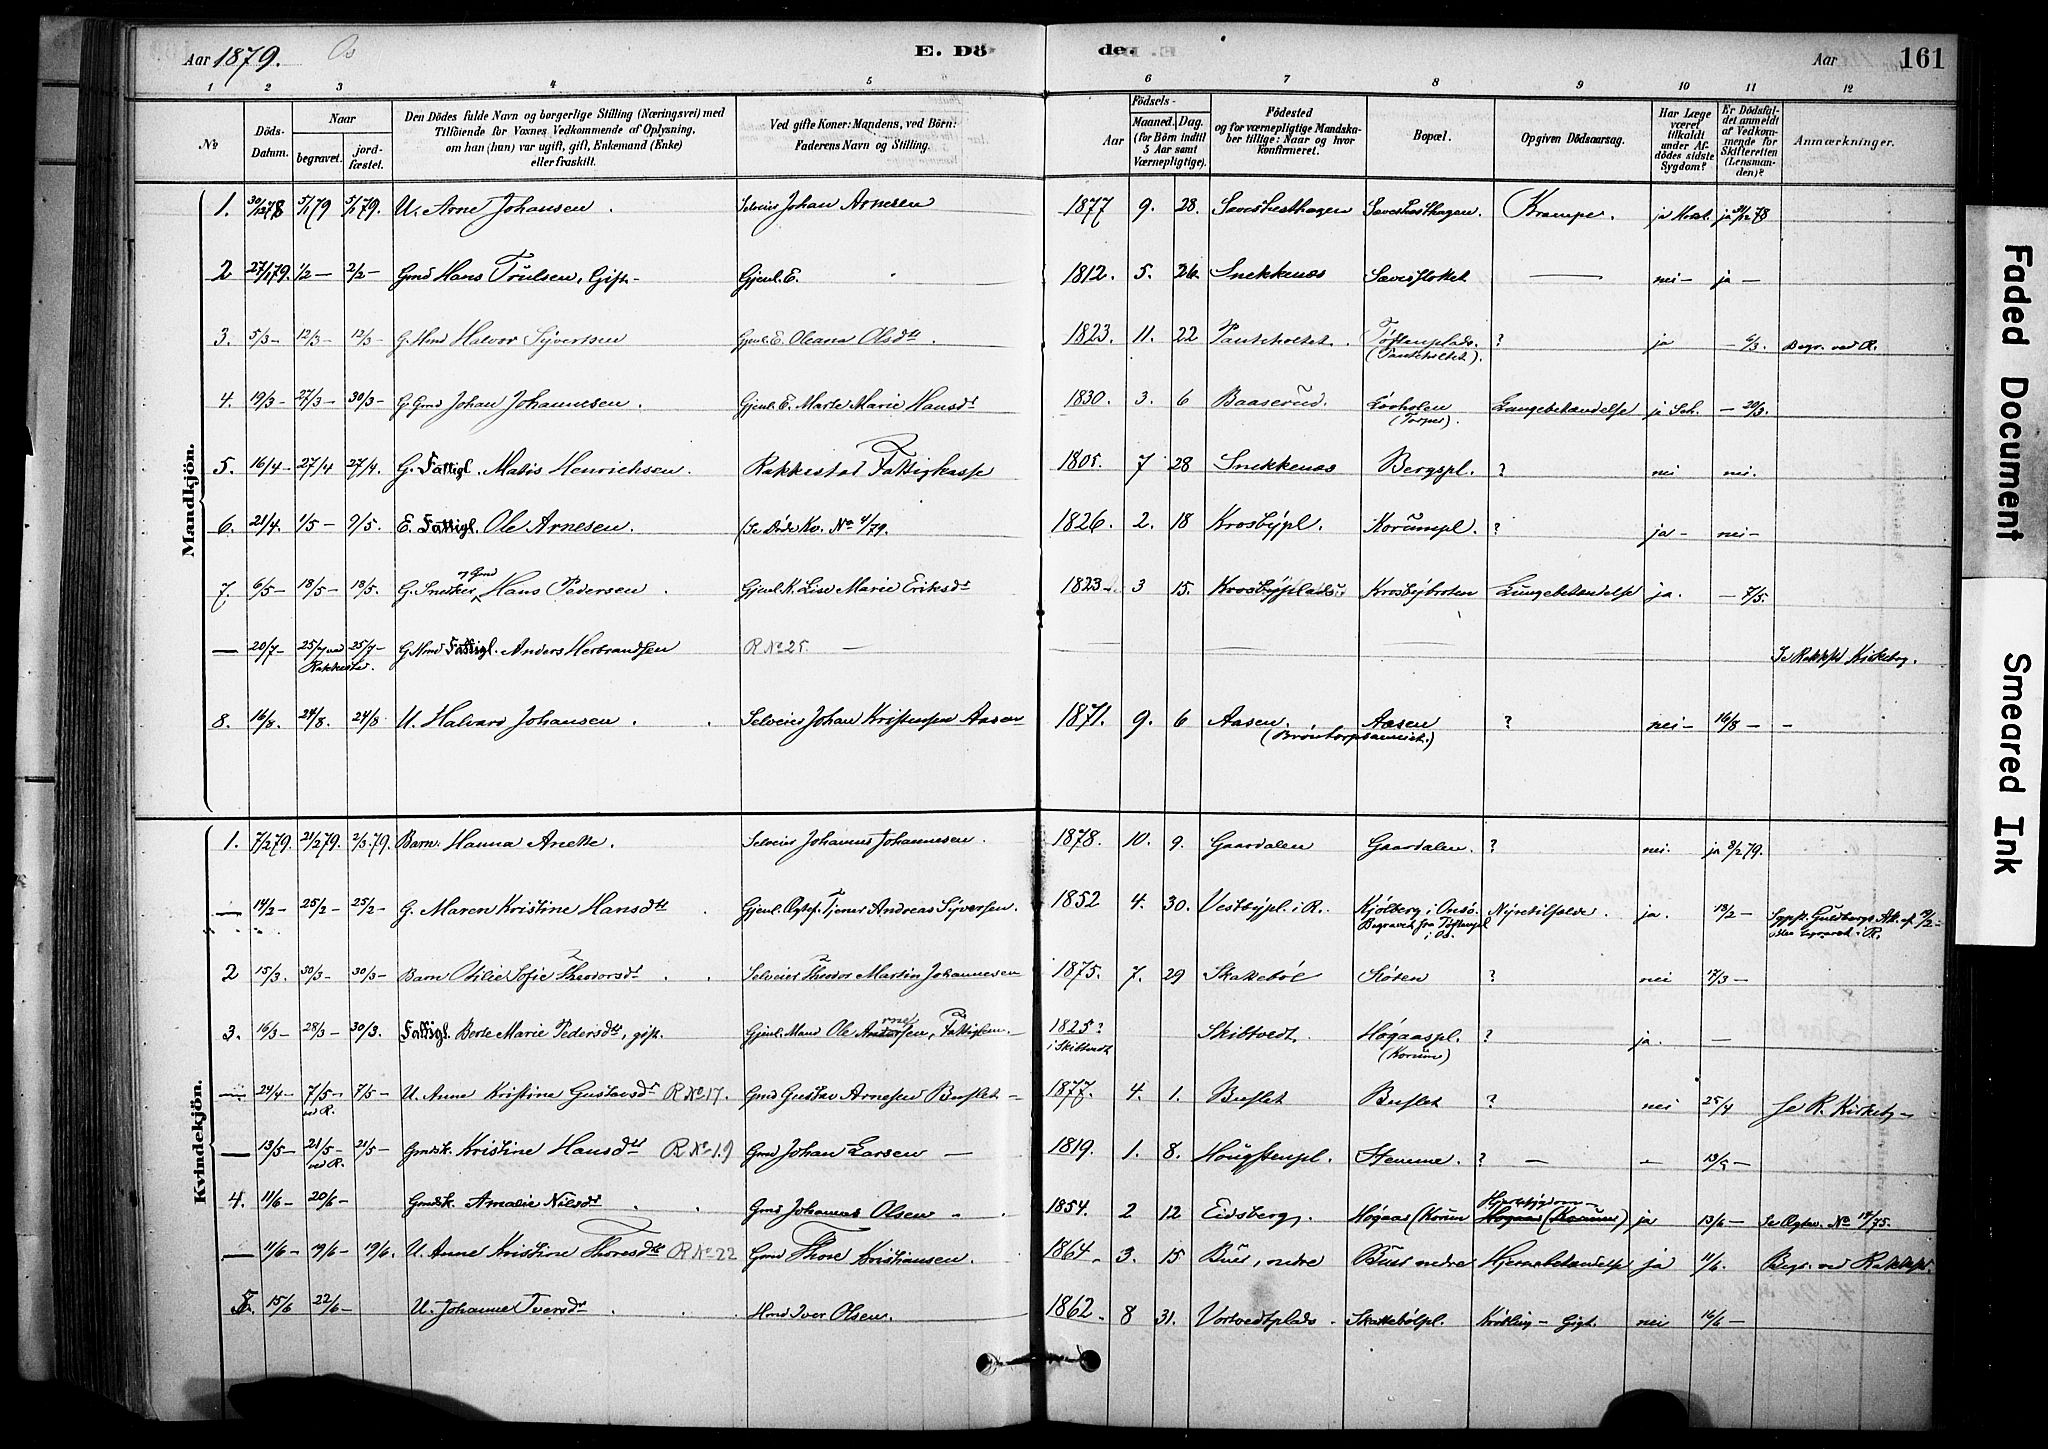 Aar 1879. Os E. Döde. Aar 161
1 2 3 4 5 6 7 8 9 10 11 12
No
Döds-Datum.
Naar
begravet.
jord-fæstet.
Den Dödes fulde Navn og borgerlige Stilling (Næringsvei) med
Tilföiende for Voxnes Vedkommende af Oplysning,
om han (hun) var ugift, gift, Enkemand (Enke)
eller fraskilt.
Ved gifte Koner: Mandens, ved Börn:
Faderens Navn og Stilling.
Födsels-
Aar
Maaned. Dag.
(for Börn indtil
5 Aar samt
Værnepligtige).
Födested
og for værnepligtige Mandska-
ber tillige: Naar og hvor
konfirmeret.
Bopæl.
Opgiven Dödsaarsag.
Har Læge
været
tilkaldt
under Af-
dödes sidste
Sygdom?
Er Dödsfal-
det anmeldt
af Vedkom-
mende for
Skifteretten
(Lensman-
den)?
Anmærkninger.
Mandkjön.
1. 30/12 78 5/1 79 5/1 79. U. Arne Johansen. Selveier Johan Arnesen 1877 9. 28. Krampe. ja
2 27/1 79. 1/2 - 2/2 - Gmd Hans Trulsen, Gift - Gjenl. E. 1812. 5. 26. Snekkenæs nei - ja -
3. 5/3 - 12/3 - 12/3 - G. Hmd Halvor Syvertsen Gjenl. E. Oleana Olsdtr. 1823. 11. 22 Tøftenplads. ? ja - 6/3. Begr. ved R.
4. 19/3 - 27/3 - 30/3 - G. Gmd Johan Johannesen. Gjenl. E. Marte Marie Hansdtr 1830. 3. 6 Baaserud. (Torper). Lungebetændelse ja Sch. - 20/3.
5. 16/4 - 27/4 27/4. G. Fattigl. Mathis Henrichsen. Rakkestad Fattigkasse 1805. 7 28 Snekkenæs Bergspl. ? nei nei.
6. 21/4. 1/5 - 9/5. E. Fattigl. Ole Arnesen. (Se Døde Kv. No 4/79. 1826. 2. 18 Krosbypl. Korumpl. ? ja - nei -
7. 6/5 - 18/5 - 18/5. G. Snedker & Gmd Hans Pedersen. Gjenl. K. Lise Marie Eriksdtr 1823 -. 3 15. Krosbyplads Krosbybroten Lungebetændelse ja. - 7/5.
— 20/7 - 25/7 ved Rakkestad. 25/7 - G. Hmd Fattigl. Anders Herbrandsen R No 25. — Se Rakkst Kirkebog.
8. 16/8. 24/8. 24/8 U. Halvard Johansen. Selveier Johan Kristensen Aasen 1871. 9. 6 Aasen. Aasen ? nei - 16/8 - -
Kvindekjön.
1. 7/2 79. 21/2 79. 2/3 79. Barn Hanna Anette. Selveier Johannes Johannesen. 1878. 10. 9. Gaardalen Gaardalen. ? nei. ja 8/2 79.
— 14/2 - 25/2 - 25/2 - G. Maren Kristine Hansdtr. Gjenl. Ægtef. Tjener Andreas Syversen. 1852 4. 30. Vestbypl. i R. Kjølberg i Onsø. Begravet fra Tøftenpl i Os. ja. 18/2 -
2 15/3. 30/3 - 30/3 - Barn Otilie Sofie Theodorsdtr. Selveier Theodor Martin Johannesen 1875. 7. 29 Skattebøl Sloren ? nei 17/3 -
3. 16/3 - 28/3 - 30/3. Fattigl. Berte Marie Pedersdtr, gift. Gjenl. Mand Ole Arnesen, Fattiglem. 1825? i Skibtvedt Skibtvedt. Høgaaspl. (Korum) ? ja. —
— 24/4 - 7/5 - ved R. 7/5 - U. Anne Kristine Gustavsdtr R No 17. Gmd Gustav Arnesen Buslet - 1877. 4. 1. Buslet Buslet ? nei 25/4 Se R. Kirkebg -
— 13/5 - 21/5 - ved R. 21/5 - Gmdsk. Kristine Hansdtr R No 19 Gmd Johan Larsen - 1819. 1. 8. Hougstenpl. Stemme. ? - -
4. 11/6 - 20/6 - Gmdsk. Amalie Nilsdtr. Gmd Johannes Olsen - 1854. 2 12 Eidsberg. Høgaas (Korum Høgaas (Korum) ja 13/6 -
— 11/6 - 19/6 - 19/6. U. Anne Kristine Thoresdtr R No 22 Gmd Thore Kristiansen. 1864. 3. 15 Buer, nedre Buer nedre Hjernebetændelse ja 11/6. Begr. ved Rakkst.
5. 15/6 22/6 - U. Johanne Iversdtr. Hmd Iver Olsen. 1862. 8 31. Vortvedtplads. Skattebølpl. Kirtlin - Gigt. nei 16/6 -
Faded Document
Smeared Ink